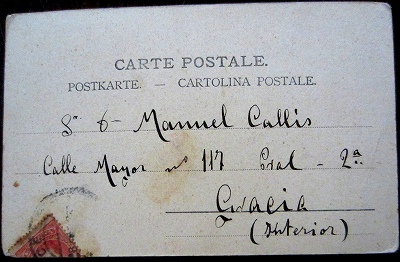 CARTE POSTALE.
POSTKARTE. — CARTOLINA POSTALE.
Sr Dn Manuel Callis
Calle Mayor nº 117 Pral - 2ª
Gracia
(Interior)